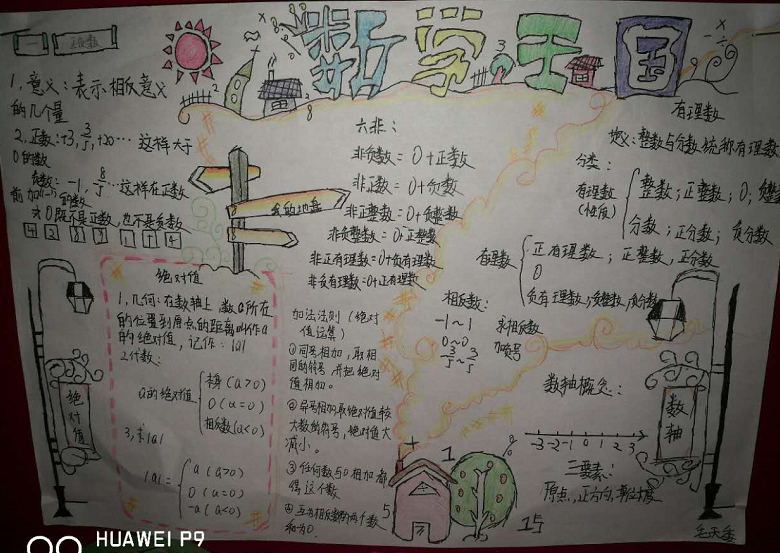 数学王国
一 正负数
1、意义：表示相反意义
的几个量
2、正数：+3, 3/5, +20…这样大于
0的数
负数：-1, 8/5…这样在正数
前加(-)的数
☆0既不是正数,也不是负数
我的地盘
六非：
非负数=0+正数
非正数=0+负数
非正整数=0+负整数
非负整数=0+正整数
非正有理数=0+负有理数
非负有理数=0+正有理数
有理数
定义：整数与分数统称有理数
分类：
有理数
(性质)
整数；正整数；0；负整
分数；正分数；负分数
有理数
正有理数；正整数，正分数
0
负有理数；负整数，负分数
相反数：
-1~1
0~0
求相反数
加负号
绝对值
1、几何：在数轴上数a所在
的位置到原点的距离叫作a
的绝对值，记作：|a|
2代数：
a的绝对值
本身(a>0)
0(a=0)
相反数(a<0)
3、求|a|
|a|=
a(a>0)
0(a=0)
-a(a<0)
绝对值
加法法则(绝对
值运算)
①同号相加，取相
同的符号，并把绝对
值相加。
②异号相加取绝对值较
大数的符号，绝对值大
减小。
③任何数与0相加都
得这个数
④互为相反数的两个数
和为0.
数轴概念：
-3 -2 -1 0 1 2 3
三要素：
原点,正方向,单位长度
数轴
15
HUAWEI P9